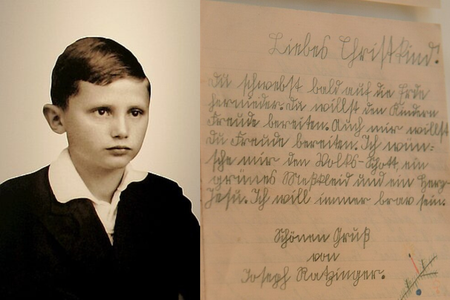 Liebes Christkind!
Du schwebst bald auf die Erde
hernieder. Du willst den Kindern
Freude bereiten. Auch mir willst
du Freude bereiten. Ich wün-
sche mir den Volks-Schott, ein
grünes Meßkleid und ein Herz
Jesu. Ich will immer brav sein.
Schönen Gruß
von
Joseph Ratzinger.